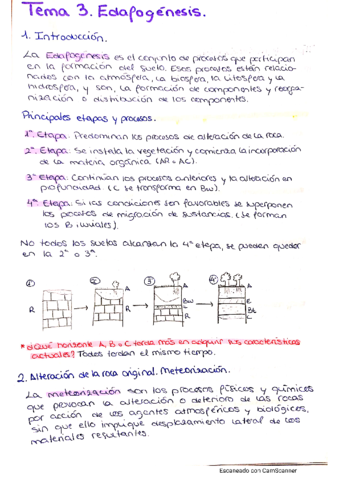 Tema 3. Edafogénesis.
1. Introducción.
La Edafogénesis es el conjunto de procesos que participan
en la formación del suelo. Esos procesos están relacio-
nados con la atmósfera, la biosfera, la litosfera y la
hidrosfera, y son, la formación de componentes y reorga-
nización o distribución de los componentes.
Principales etapas y procesos.
1ª Etapa. Predominan los procesos de alteración de la roca.
2ª Etapa. Se instala la vegetación y comienza la incorporación
de la materia orgánica (AR → AC).
3ª Etapa. Continúan los procesos anteriores y la alteración en
profundidad (C se transforma en Bw).
4ª Etapa. Si las condiciones son favorables se superponen
los procesos de migración de sustancias (se forman
los B iluviales).
No todos los suelos alcanzan la 4ª etapa, se pueden quedar
en la 2ª o 3ª.
① ② ③ ④
R
A
R
A
Bw
C
R
A
E
Bt
C
* ¿Qué horizonte A, B o C tarda más en adquirir sus características
actuales? Todos tardan el mismo tiempo.
2. Alteración de la roca original. Meteorización.
La meteorización son los procesos físicos y químicos
que provocan la alteración o deterioro de las rocas
por acción de los agentes atmosféricos y biológicos,
sin que ello implique desplazamiento lateral de los
materiales resultantes.
Escaneado con CamScanner